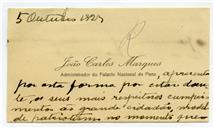 5 Outubro 192
R
João Carlos Marques
Administrador do Palacio Nacional da Pena, apresenta
por esta forma por estar doen-
te, os seus mais respeitosos cumpri-
mentos ao grande cidadão, modelo
de patriotismo no momento que